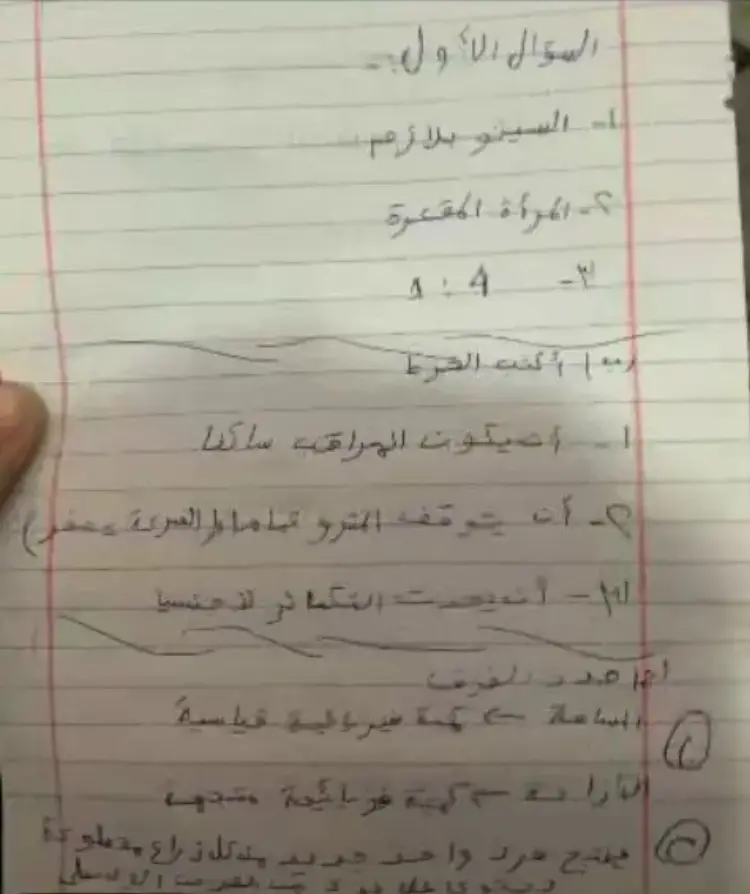 السؤال الأول :-
١- السيتو بلازم
٢- المرأة المقعرة
٣- 4 : 1
ب) أكتب الشرط
١- أن يكون المراقب ساكنا
٢- أن يتوقف المترو تماما (السرعة = صفر)
٣- أن يحدث التكاثر لاجنسيا
حدد الفرق
① المساحة ← كمية فيزيائية قياسية
الازاحة ← كمية فيزيائية متجهة
② ينتج فرد واحد جديد من كل ذراع مقطوعة
يحتوي على جزء من القرص الوسطى